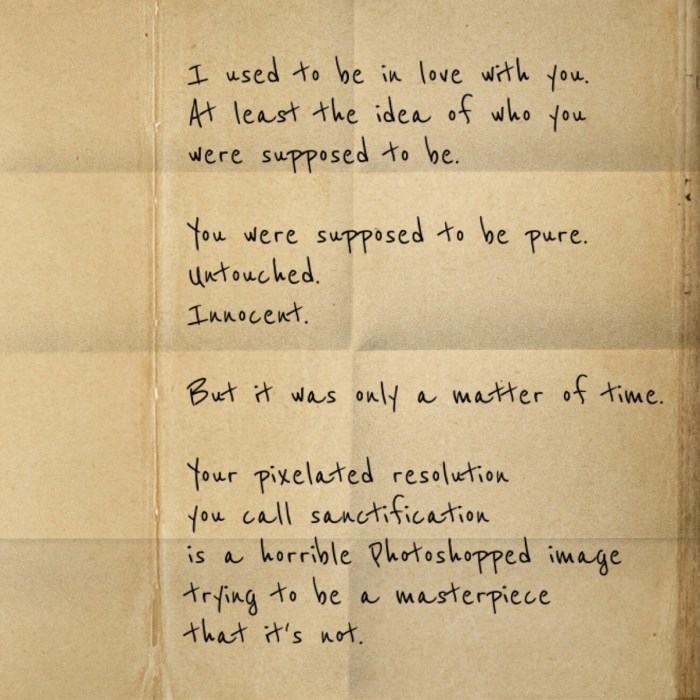 I used to be in love with you.
At least the idea of who you
were supposed to be.
You were supposed to be pure.
Untouched.
Innocent.
But it was only a matter of time.
Your pixelated resolution
you call sanctification
is a horrible Photoshopped image
trying to be a masterpiece
that it's not.